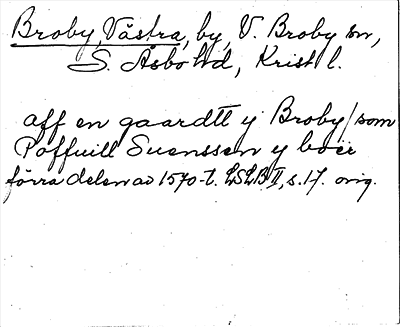 Broby, Västra, by, V. Broby sn,
S. Åsbo hd, Krist l.
aff en gaardtt y Broby/som
Poffuill Suenssen y boer
förra delen av 1570-t. LSLB II, s.17. orig.